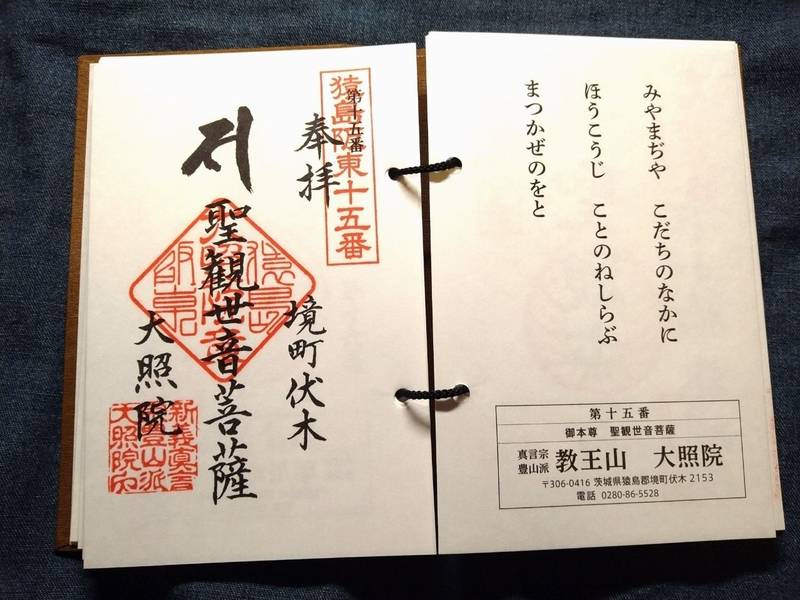 みやまぢや　こだちのなかに
ほうこうじ　ことのねしらぶ
まつかぜのをと
第十五番
御本尊　聖観世音菩薩
真言宗
豊山派
教王山　大照院
〒306-0416 茨城県猿島郡境町伏木 2153
電話 0280-86-5528
猿島阪東十五番
第十五番
奉拝
境町伏木
聖観世音菩薩
大照院
新義真言
豊山派
大照院印